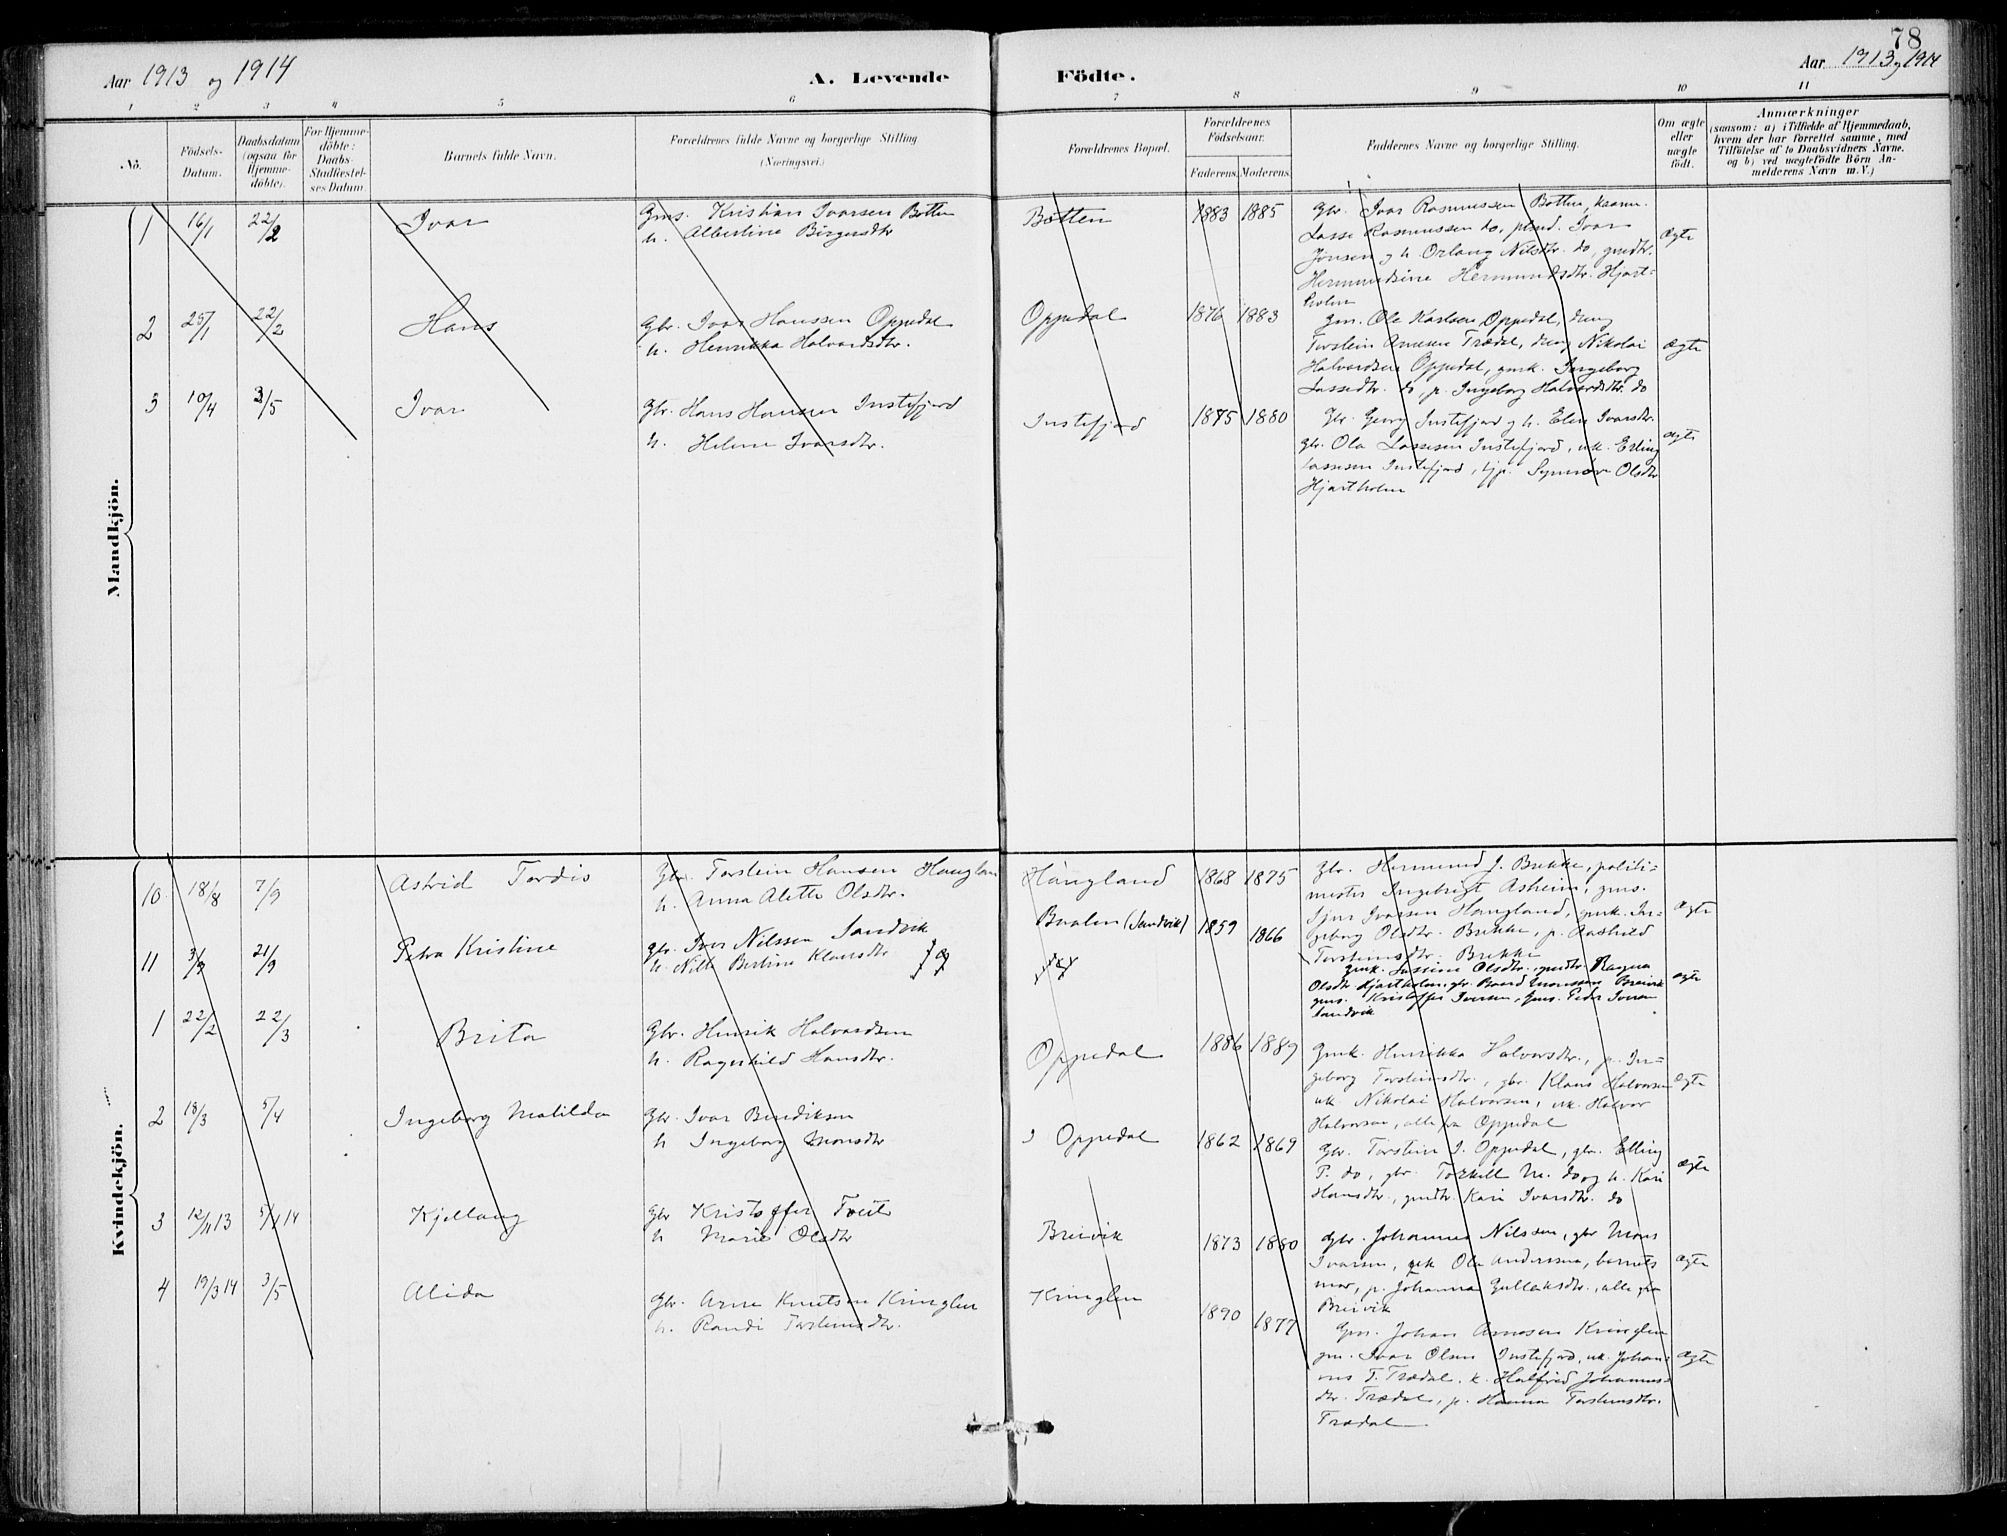 78
Aar 1913 og 1914
A. Levende Födte.
Aar 1913 og 1914
1 2 3 4 5 6 7 8 9 10 11
No.
Födsels-Datum.
Daabsdatum (ogsaa for Hjemme-döbte).
For Hjemme-döbte: Daabs-Stadfæstel-ses Datum
Barnets fulde Navn.
Forældrenes fulde Navne og borgerlige Stilling (Næringsvei.)
Forældrenes Bopæl.
Forældrenes Födselsaar.
Faderens. Moderens.
Faddernes Navne og borgerlige Stilling.
Om ægte eller uægte födt.
Anmærkninger
(saasom: a) i Tilfælde af Hjemmedaab,
hvem der har forrettet samme, med
Tilföielse af to Daabsvidners Navne.
og b) ved uægtefödte Börn An-
melderens Navn m.V.)
Mandkjön.
1 16/1 22/2 Ivar Gms. Kristian Ivarsen Botten Botten 1883 1885 Gbr. Ivar Rasmussen Botten,
h. Albertine Birgersdtr
Lasse Rasmussen do, Ivar ægte
Jonsen og h. Orlaug Nilsdtr. do, gmdtr.
Hermundsine Hermundsdtr. Hjart-
holm
2 25/1 22/2 Hans Gbr. Ivar Hanssen Oppedal Oppedal 1876 1883 Gm. Ole Karlsen Oppedal, ung
h. Henrikka Halvardsdtr.
Torstein Arnesen Trædal, ung Nikolai ægte
Halvardsen Oppedal, gmk. Ingeborg
Lassedtr. do, p. Ingeborg Halvardsdtr. do
3 10/4 3/5 Ivar Gbr. Hans Hansen Instefjord Instefjord 1875 1880 Gbr. Georg Instefjord og h. Elen Ivarsdtr.
h. Helene Ivarsdtr.
gbr. Ola Lassesen Instefjord, uk. Erling ægte
Lassesen Instefjord, Synnøve Olsdtr
Hjartholm
Kvindekjön.
10 18/8 7/9 Astrid Tordis Gbr. Torstein Hansen Haugland Haugland 1868 1875 Gbr. Hermund J. Brekke, politi-
h. Anna Alette Olsdtr.
mester Ingebrigt Asheim, gms.
Ivarsen Haugland, gmk. In- ægte
geborg Olsdtr. Brekke, p. Aashild
Torsteinsdtr. Brekke
11 3/9 21/9 Petra Kristine gbr. Iver Nilssen Sandvik (Sandvik) 1859 1866 gmk. Olsdtr. Ragna
h. Bertine Klausdtr
Olsdtr. Hjartholm, gbr. Baard Monssen Breivik ægte
gms. Kristoffer Iversen, gms. Peder
Sandvik
1 22/2 22/3 Brita Gbr. Henrik Halvardsen Oppedal 1886 1889 Gmk. Henrikka Halvorsdtr., p. In-
h. Ragnhild Hansdtr.
geborg Torsteinsdtr., gbr. Klaus Halvorsen ægte
uk. Nikolai Halvorsen, uk. Halvor
Halvorsen, alle fra Oppedal
2 18/3 5/4 Ingeborg Matilda Gbr. Ivar Bendiksen Oppedal 1862 1869 Gbr. Torstein I. Oppedal, gbr. Elling
h Ingeborg Monsdtr
P. do, gbr. Torkell M. do og h. Kari ægte
Hansdtr., gmdtr. Kari Ivarsdtr. do
3 12/11 13 5/1 14 Kjellaug Gbr Kristoffer Tveit Breivik 1873 1880 Gbr. Johannes Nilssen, gbr Mons
h Marie Olsdtr
Ivarsen, uk Ola Anderssen, barnets ægte
mor, p. Johanna Gullaksdtr., alle fra
Breivik
4 19/3 14 3/5 Alida Gbr. Arne Knutsen Kringlen Kringlen 1890 1877 Gm. Johan Arnesen Kringlen
h. Randi Torsteinsdtr.
gm. Ivar Olsen Instefjord, uk. Johan- ægte
nes T. Trædal, k. Halfrid Johannes-
dtr. Trædal, p. Hanna Torsteinsdtr.
Trædal